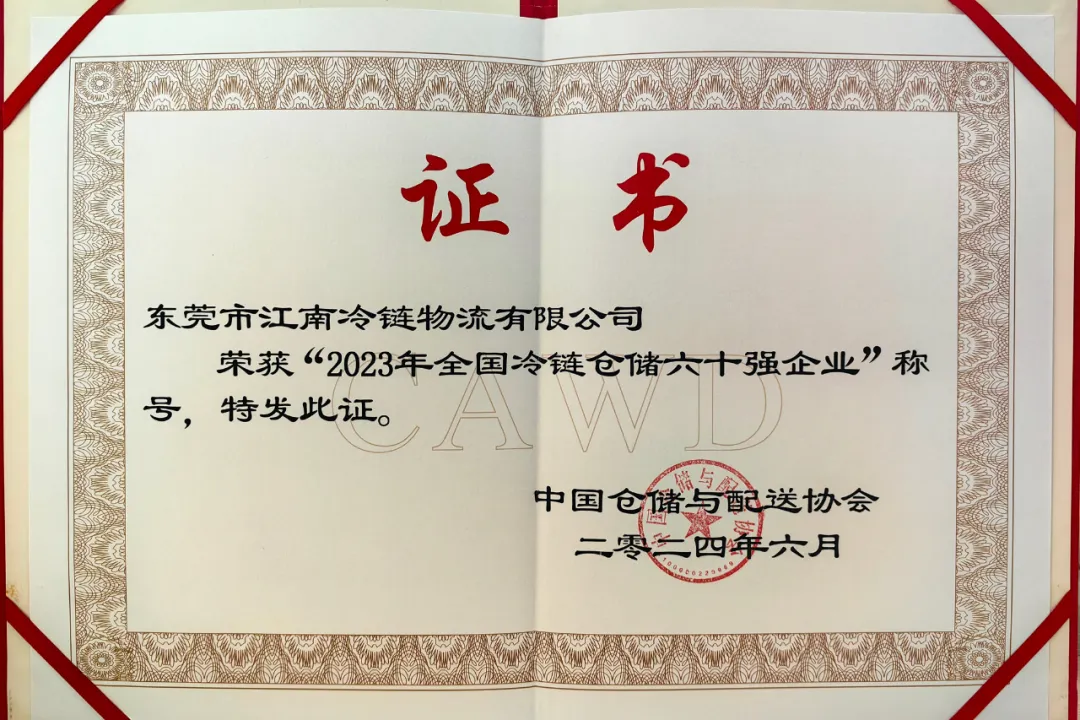 证 书
东莞市江南冷链物流有限公司
荣获“2023年全国冷链仓储六十强企业”称
号，特发此证。
CAWD
中国仓储与配送协会
二零二四年六月